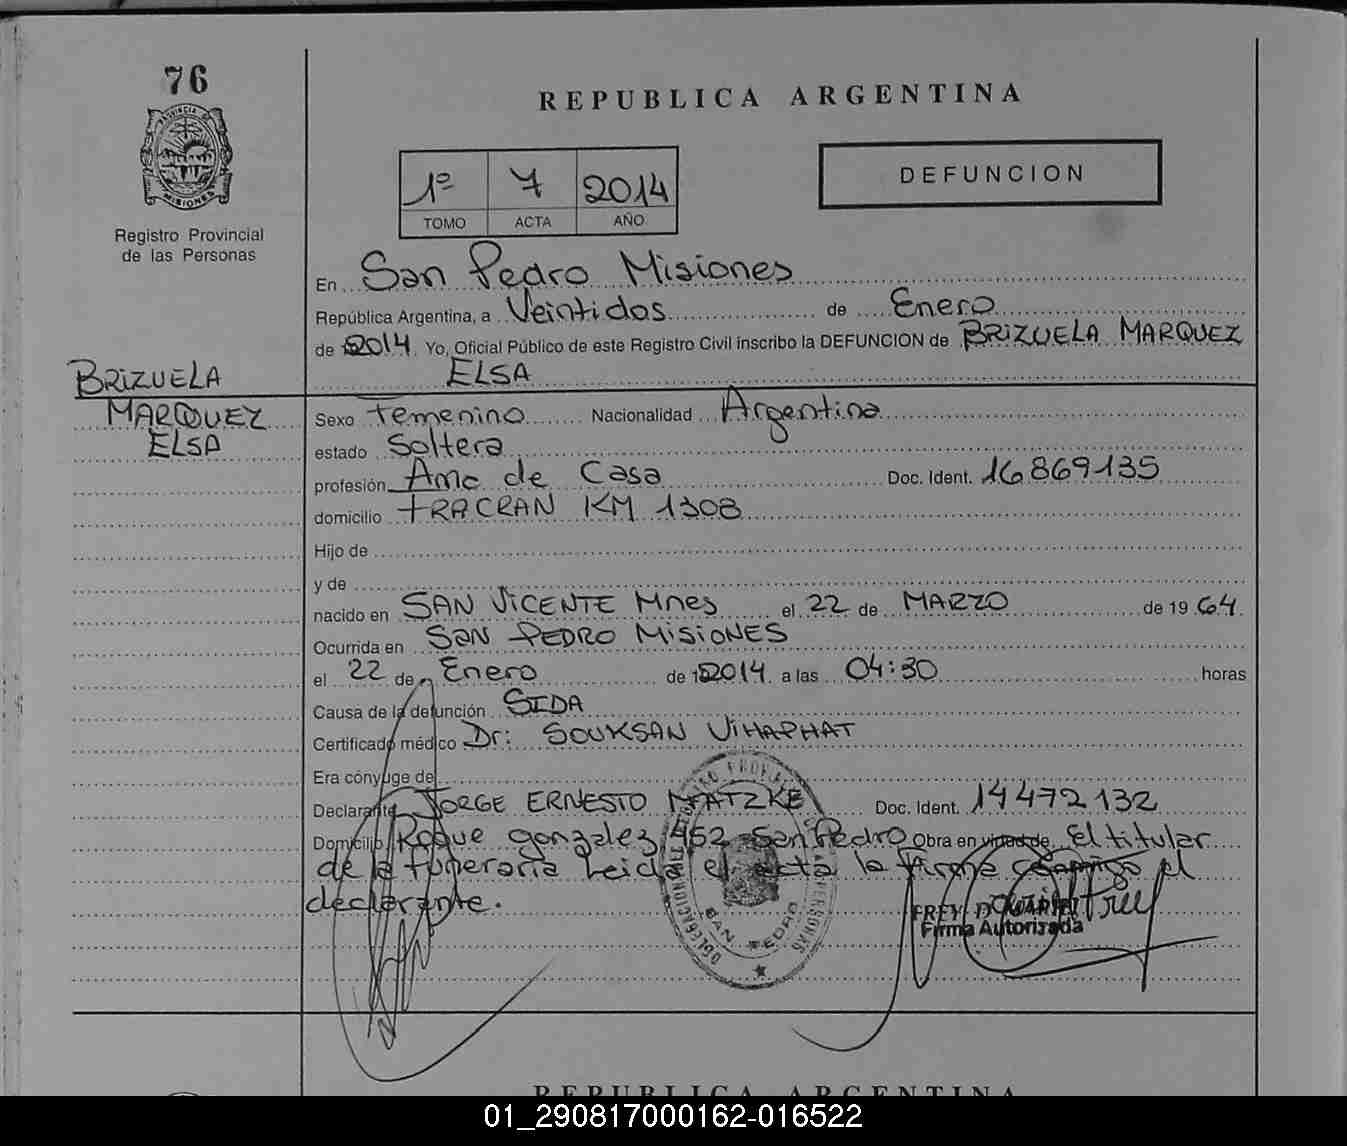 76
PROVINCIA DE
MISIONES
Registro Provincial
de las Personas
REPUBLICA ARGENTINA
1º 7 2014
TOMO ACTA AÑO
DEFUNCION
En San Pedro Misiones
República Argentina, a Veintidos de Enero
de 2014 Yo, Oficial Público de este Registro Civil inscribo la DEFUNCION de BRIZUELA MARQUEZ
ELSA
BRIZUELA
MARQUEZ
ELSA
Sexo Femenino Nacionalidad Argentina
estado Soltera
profesión Ama de Casa Doc. Ident. 16869135
domicilio TRACRAN KM 1308
Hijo de
y de
nacido en SAN VICENTE Mnes el 22 de MARZO de 19 64.
Ocurrida en SAN PEDRO MISIONES
el 22 de Enero de 2014 a las 04:30 horas
Causa de la defunción SIDA
Certificado médico Dr: SOUKSAN VIHAPHAT
Era cónyuge de
Declarante JORGE ERNESTO MATZKE Doc. Ident. 14472132
Domicilio Roque gonzalez 452 San Pedro Obra en virtud de El titular
de la funeraria Leida el acta la firma conmigo el
declarante.
SAN PEDRO
FREY
Firma Autorizada
REPUBLICA ARGENTINA
01_290817000162-016522